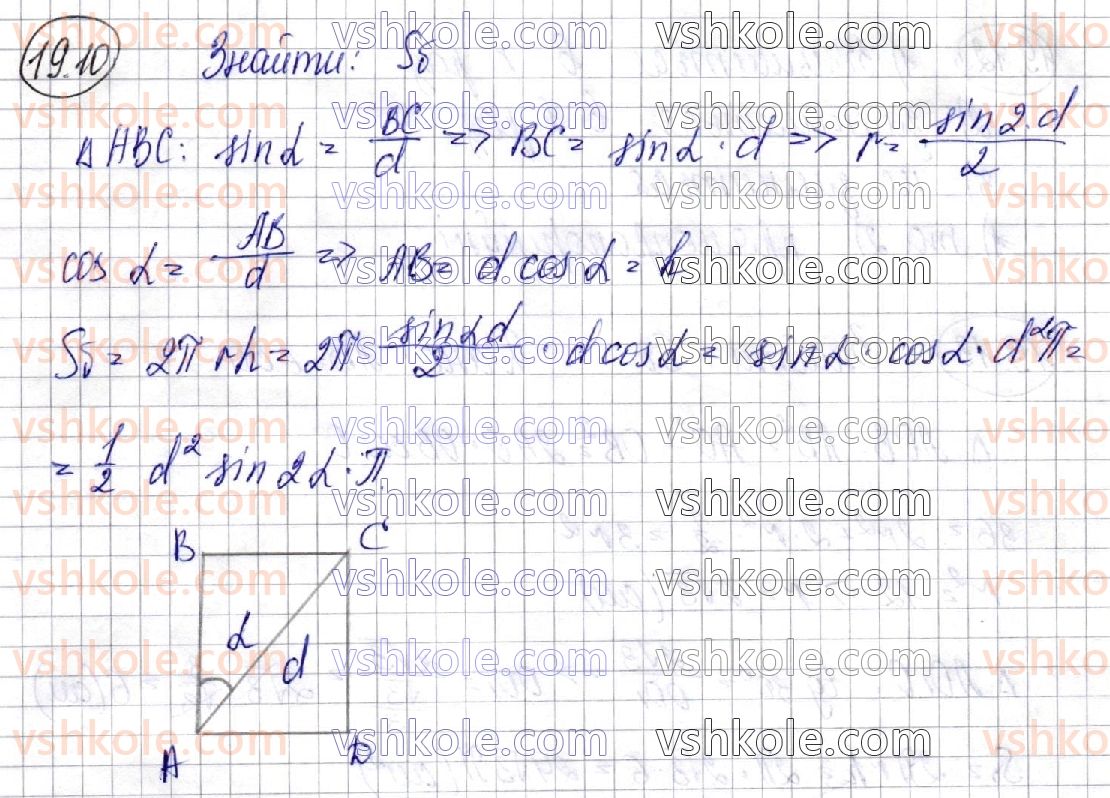 19.10 Знайти: Sб
△ABC: sinα = BC/d => BC = sinα · d => r = sinα·d/2
cosα = AB/d => AB = d cosα = h
Sб = 2πrh = 2π sinαd/2 · d cosα = sinα · cosα · d²π =
= 1/2 d² sin2α · π.
B C
α
d
A D
vshkole.com